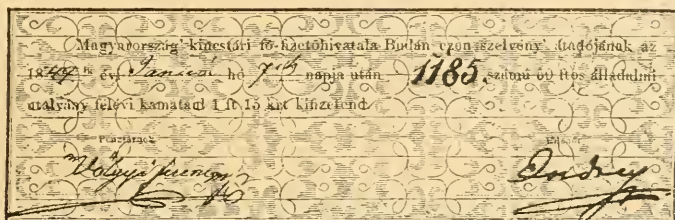 Magyarország kincstári fő-fizetőhivatala Budán ezen szelvény átadójának az
1849ik évi Januári hó 7ik napja után 1185 számú 50 ftos álladalmi
utalvány felévi kamatául 1 ft 15 krt kifizetend.
Pénztárnok
Ellenőr